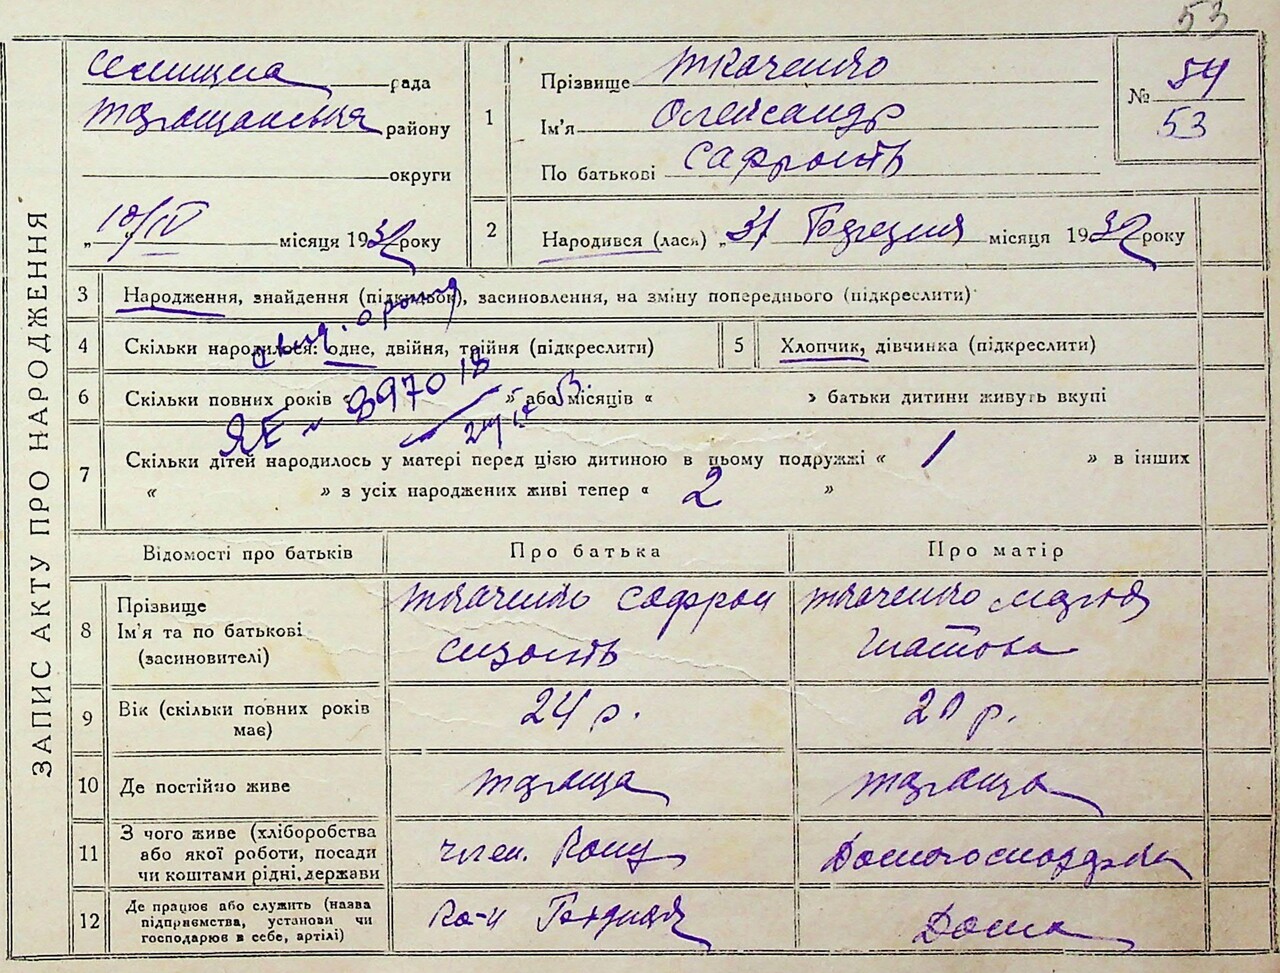 53
ЗАПИС АКТУ ПРО НАРОДЖЕННЯ
Селищна рада
Таращанська району
округи
„10/IV місяця 1932 року
1
Прізвище Ткаченко
Ім'я Олександр
По батькові Сафронів
№ 54
53
2
Народився (лася) „31 Березня місяця 1932 року
3 Народження, знайдення (підкидьок), засиновлення, на зміну попереднього (підкреслити)
4 Скільки народилося: одне, двійня, трійня (підкреслити)
5 Хлопчик, дівчинка (підкреслити)
6 Скільки повних років „ » або місяців « » батьки дитини живуть вкупі
ЯЕ 397018
7 Скільки дітей народилось у матері перед цією дитиною в цьому подружжі « 1 » в інших
« » з усіх народжених живі тепер « 2 »
Відомості про батьків Про батька Про матір
8 Прізвище
Ім'я та по батькові
(засиновителі)
Ткаченко Сафрон
Ткаченко Марія
9 Вік (скільки повних років має)
24 р.
20 р.
10 Де постійно живе
Тараща
Тараща
11 З чого живе (хліборобства
або якої роботи, посади
чи коштами рідні, держави
член. Кому
Домогосподарка
12 Де працює або служить (назва
підприємства, установи чи
господарює в себе, артілі)
Дома